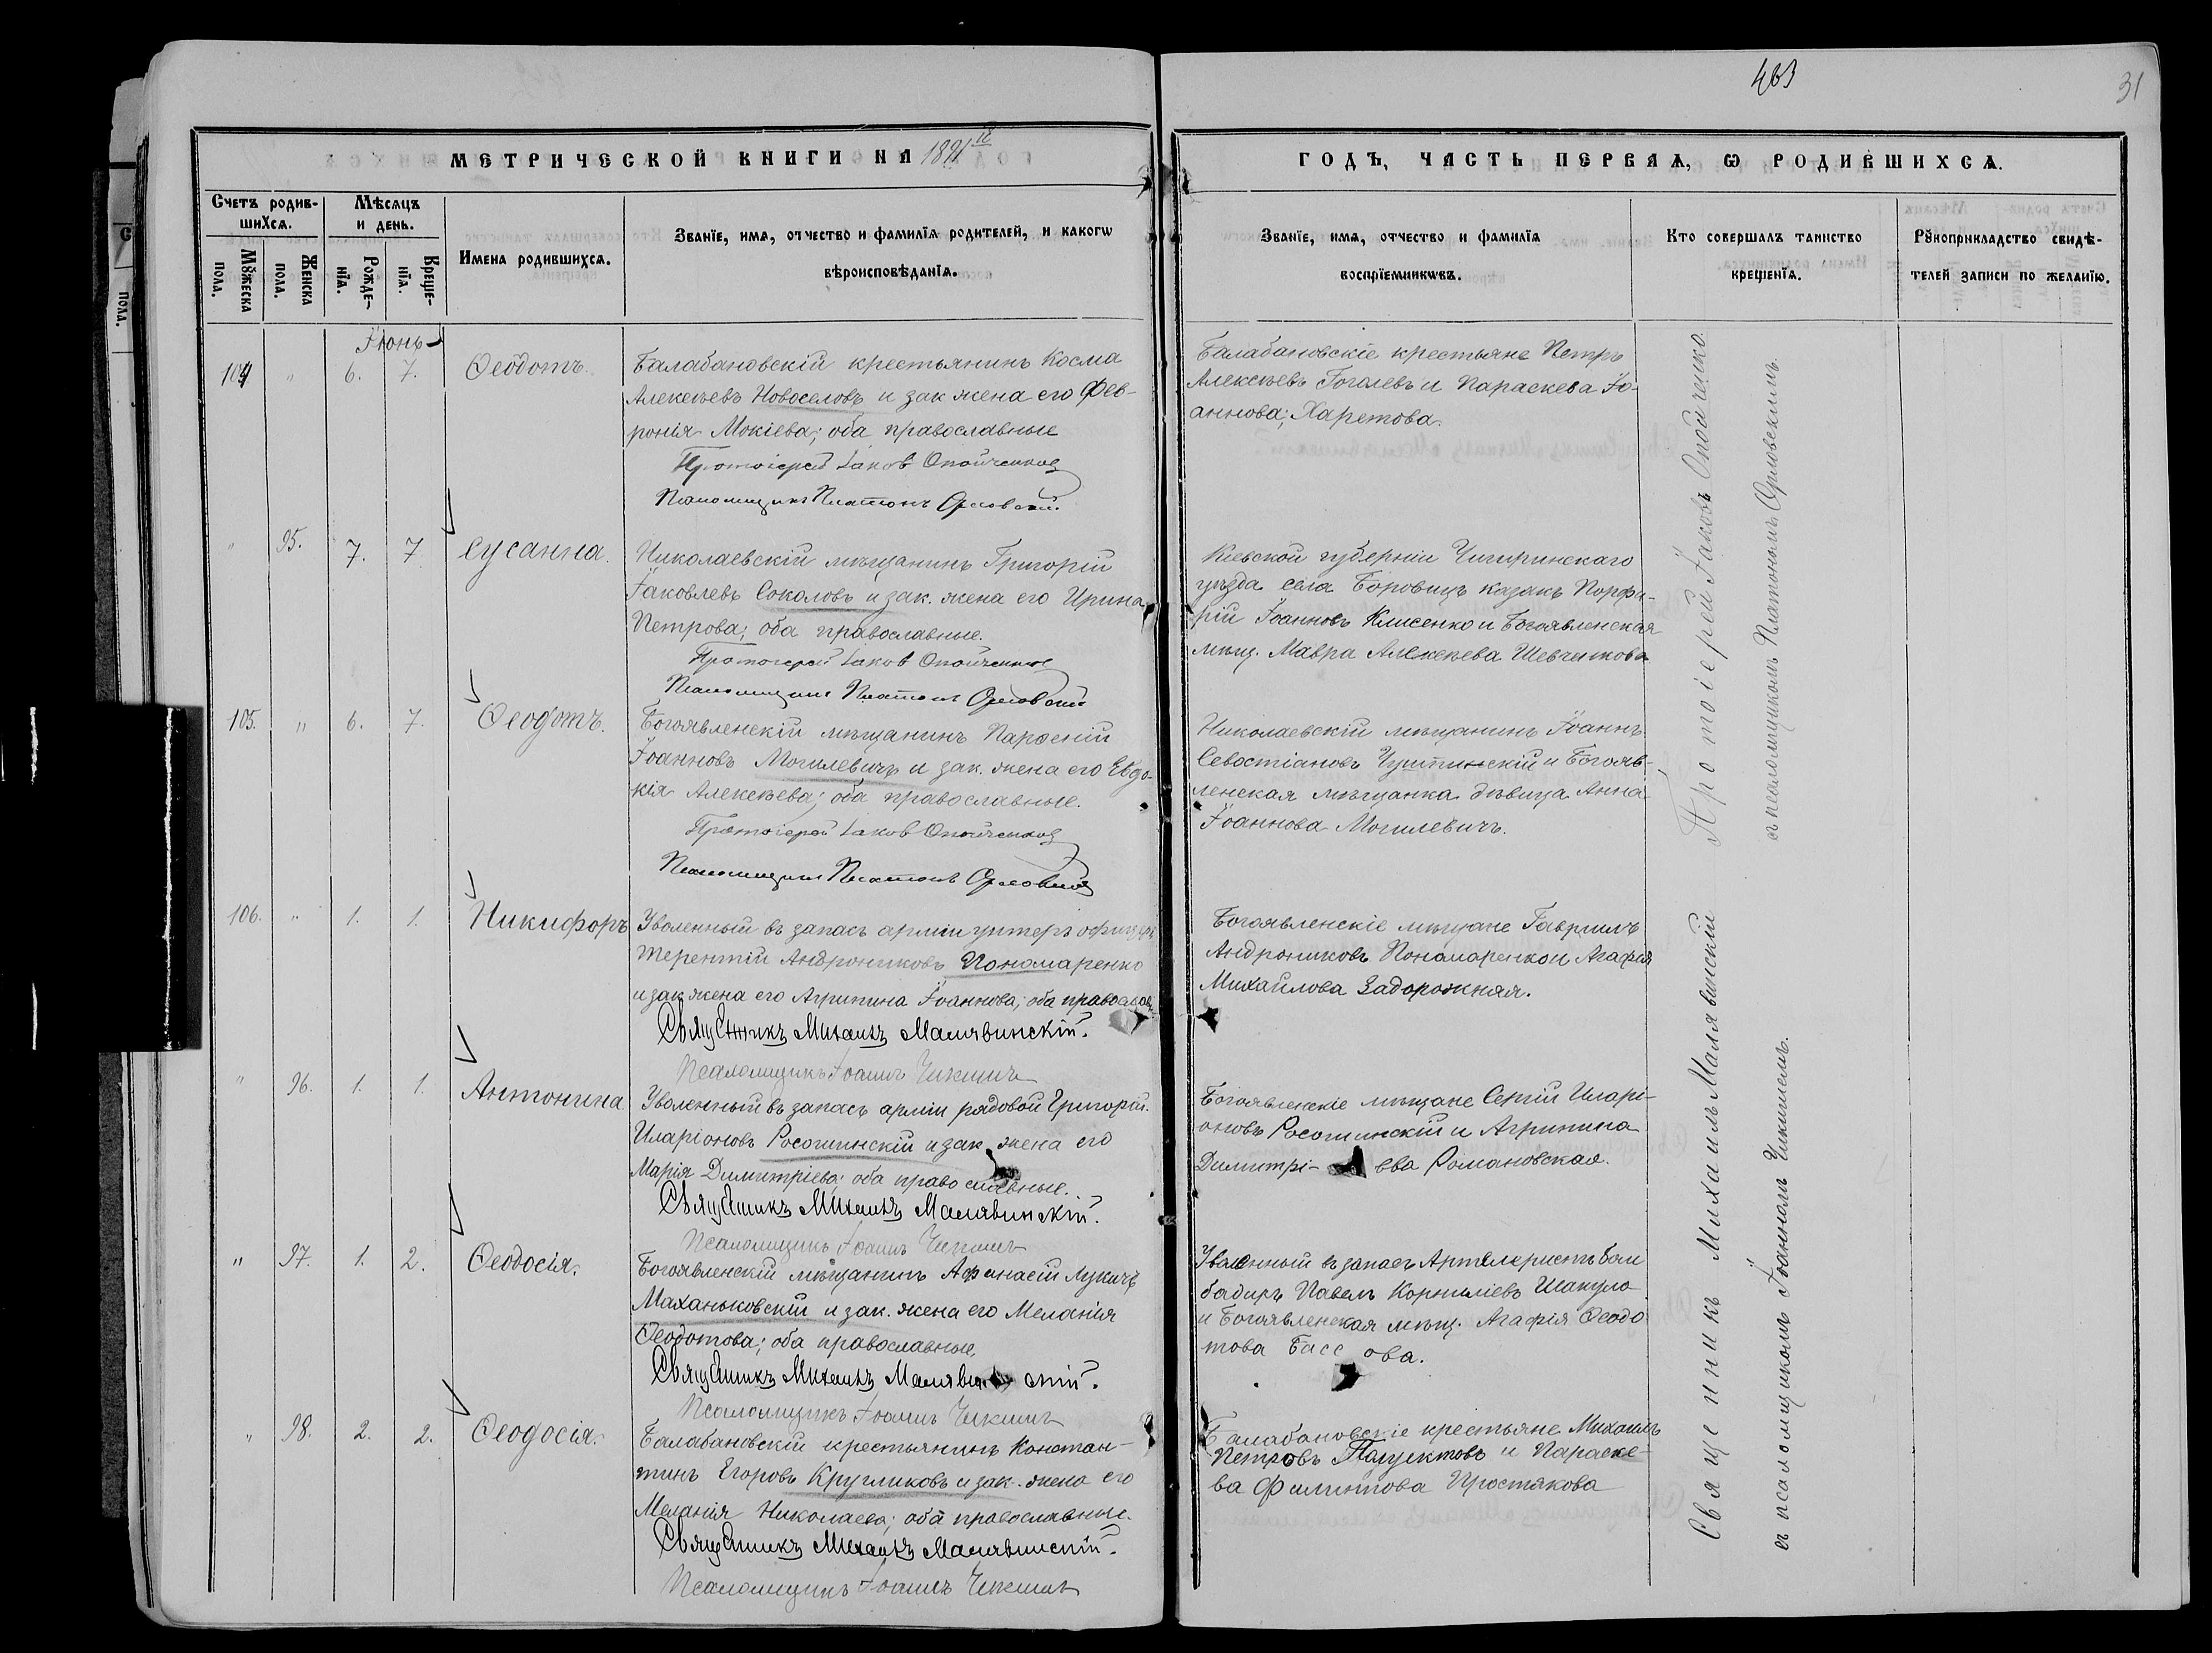 463
31
МЕТРИЧЕСКОЙ КНИГИ НА 1891й
ГОДЪ, ЧАСТЬ ПЕРВАѦ, Ѡ РОДИВШИХСѦ.
Счетъ родив-
шиХсѧ.
Мѣсѧцъ
и день.
Имена родившихсѧ.
Званїе, имѧ, отчество и фамилїѧ родителей, и какогѡ
вѣроисповѣданїѧ.
Мꙋжеска
пола.
Женска
пола.
Рожде-
нїѧ.
Креще-
нїѧ.
Званїе, имѧ, отчество и фамилїѧ
воспрїемникѡвъ.
Кто совершалъ таинство
крещенїѧ.
Рꙋкоприкладство свидѣ-
телей записи по желанїю.
Іюнь
104 " 6. 7. Ѳеодотъ.
Балабановскій крестьянинъ Косма
Алексѣевъ Новоселовъ и зак жена его Фев-
ронія Мокіева; оба православные
Протоіерей Іаковъ Опойченко
Псаломщикъ Платонъ Орловскій.
Балабановскіе крестьяне Петръ
Алексѣевъ Гоголевъ и Параскева Іо-
аннова; Харетова.
" 95. 7. 7 Сусанна.
Николаевскій мѣщанинъ Григорій
Іаковлевъ Соколовъ и зак. жена его Ирина
Петрова; оба православные.
Протоіерей Іаковъ Опойченко
Псаломщикъ Платонъ Орловскій
Кіевской губерніи Чигиринскаго
уѣзда села Боровицъ казакъ Порфи-
рій Іоанновъ Клисенко и Богоявленская
мѣщ. Мавра Алексѣева Шевченкова
105. " 6. 7. Ѳеодотъ.
Богоявленскій мѣщанинъ Парѳеній
Іоанновъ Могилевичъ и зак. жена его Евдо-
кія Алексѣева; оба православные.
Протоіерей Іаковъ Опойченко
Псаломщикъ Платонъ Орловскій
Николаевскій мѣщанинъ Іоаннъ
Севостіановъ и Богояв-
ленская мѣщанка дѣвица Анна
Іоаннова Могилевичъ.
106. " 1. 1. Никифоръ
Уволенный въ запасъ арміи унтеръ офицеръ
Терентій Андрониковъ Пономаренко
и зак жена его Агрипина Іоаннова; оба православ
Священникъ Михаилъ Малявинскій.
Псаломщикъ Іоаннъ Чикишъ
Богоявленскіе мѣщане Гавріилъ
Андрониковъ Пономаренко и Агафія
Михайлова Задорожняя.
" 96. 1. 1. Антонина
Уволенный въ запасъ арміи рядовой Григорій
Иларіоновъ Росошинскій и зак. жена его
Марія Димитріева; оба православные.
Священникъ Михаилъ Малявинскій.
Псаломщикъ Іоаннъ Чикишъ
Богоявленскіе мѣщане Сергій Иларі-
оновъ Росошинскій и Агрипина
Димитрі- ева Романовская.
" 97. 1. 2. Ѳеодосія.
Богоявленскій мѣщанинъ Афанасій Лукичъ
Маханьковскій и зак. жена его Меланія
Ѳеодотова; оба православные.
Священникъ Михаилъ Малявинскій.
Псаломщикъ Іоаннъ Чикишъ
Уволенный въ запасъ Артилеристъ бом
бадиръ Павелъ Корниліевъ Шакула
и Богоявленская мѣщ. Агафія Ѳеодо
това Басс ова.
" 98. 2. 2. Ѳеодосія.
Балабановскій крестьянинъ Констан-
тинъ Егоровъ Кругликовъ и зак. жена его
Меланія Николаева; оба православные.
Священникъ Михаилъ Малявинскій.
Псаломщикъ Іоаннъ Чикишъ
Балабановскіе крестьяне Михаилъ
Петровъ и Параске-
ва Филиппова Простякова
Протоіерей Іаковъ Опойченко
съ псаломщикомъ Платономъ Орловскимъ.
Священникъ Михаилъ Малявинскій
съ псаломщикомъ Іоанномъ Чикишемъ.